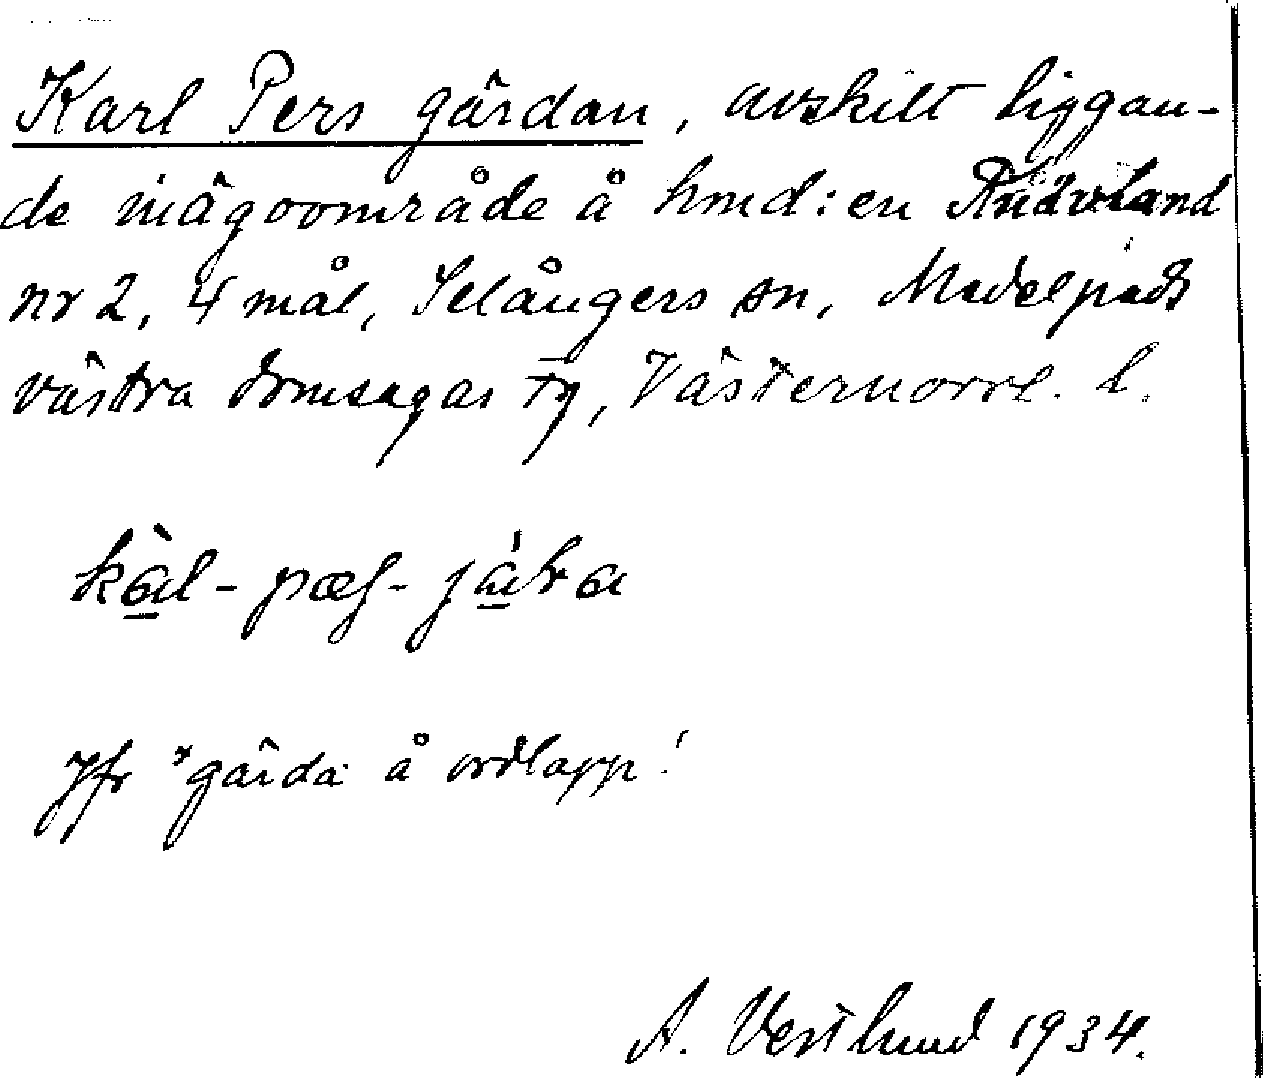 Karl Pers gärdan, avskilt liggan-
de inägoområde å hmd: en Rudvland
nr 2, 4 mål, Selångers sn, Medelpads
västra domsagas tg, Västernorrl. l.
kàl - pæʃ - jàɽa
Jfr *gärda å ordlapp!
A. Vestlund 1934.